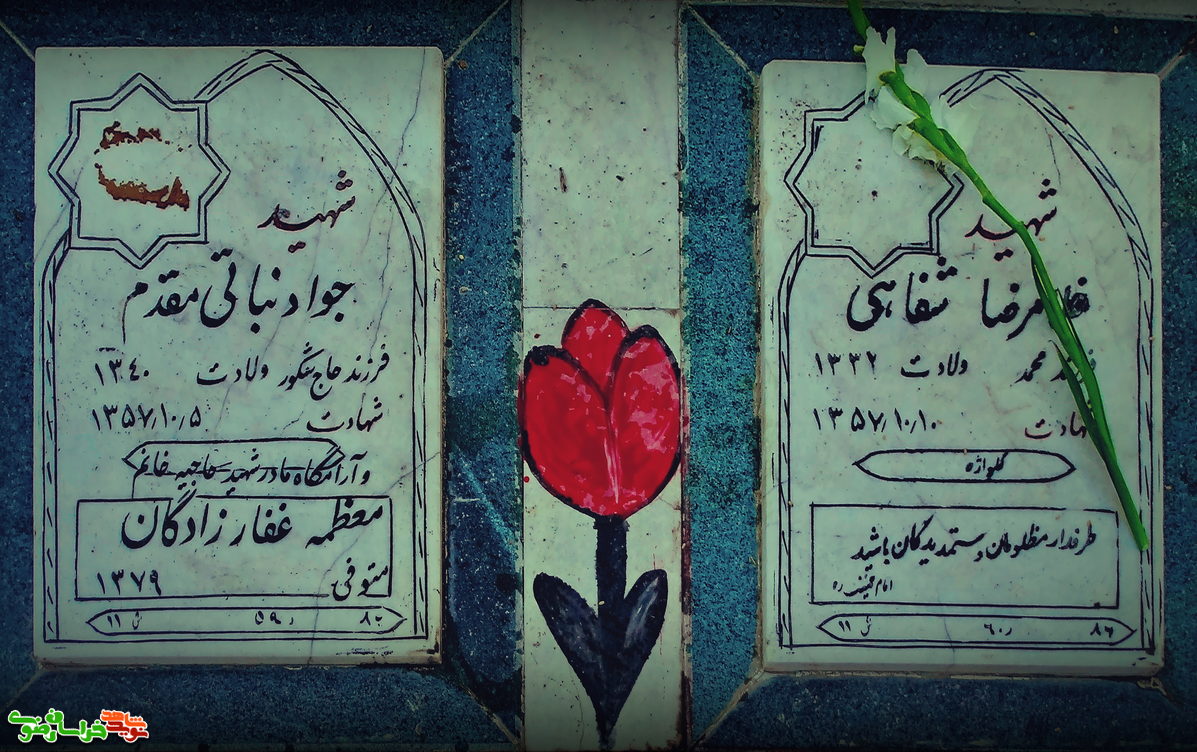 شهید
جواد نباتی مقدم
فرزند حاج شکور ولادت ۱۳۴۰
شهادت ۱۳۵۷/۱۰/۵
و آرامگاه مادر شهید حاجیه خانم
معظمه غفارزادگان
متوفی ۱۳۷۹
۸۶ ر ۵۹ ش ۱۱
شهید
شفاهی
محمد ولادت ۱۳۳۲
شهادت ۱۳۵۷/۱۰/۱۰
گلواژه
طرفدار مظلومان و ستمدیدگان باشید
امام خمینی ره
۸۶ ر ۶۰ ش ۱۱
نوید شاهد
خراسان رضوی